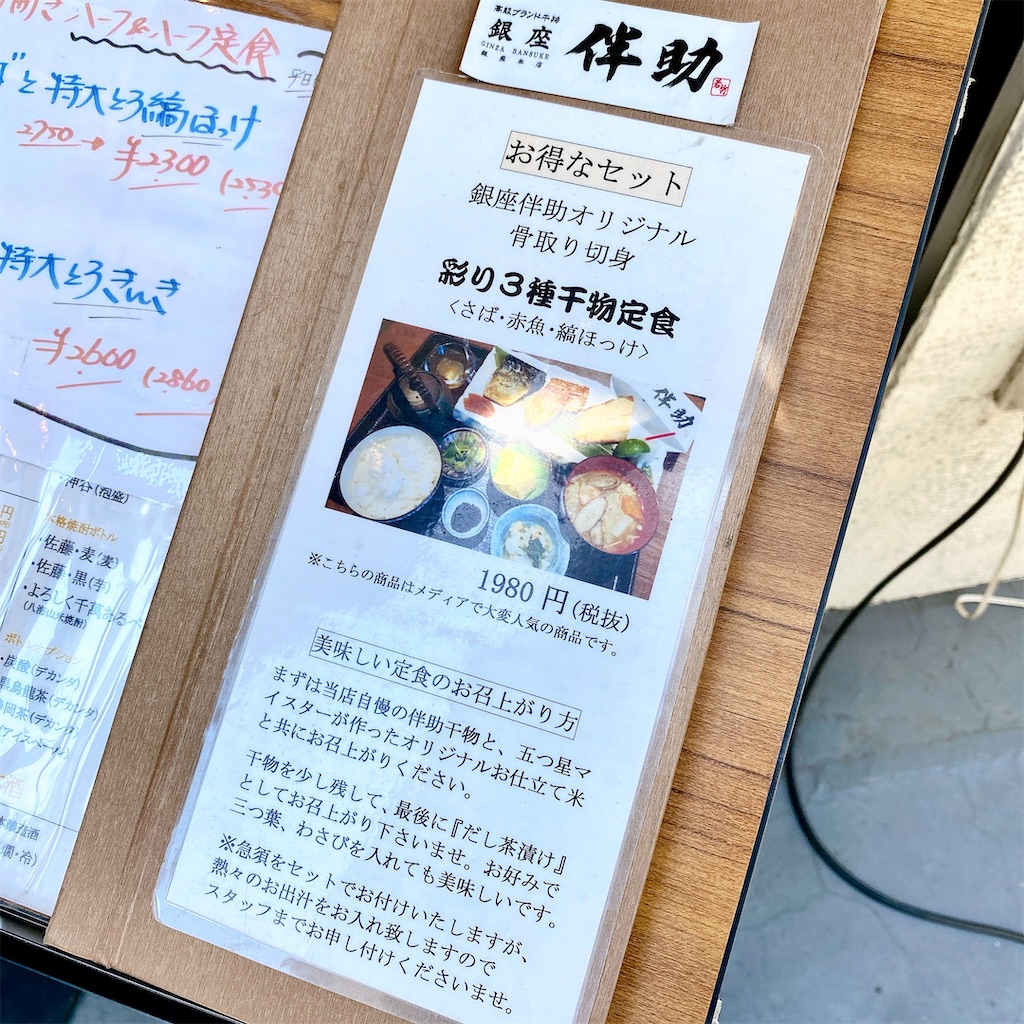 高級ブランド干物
銀座
GINZA BANSUKE
銀座本店
伴助
お得なセット
銀座伴助オリジナル
骨取り切身
彩り3種干物定食
〈さば・赤魚・縞ほっけ〉
伴助
1980 円(税抜)
※こちらの商品はメディアで大変人気の商品です。
美味しい定食のお召上がり方
まずは当店自慢の伴助干物と、五つ星マ
イスターが作ったオリジナルお仕立て米
と共にお召上がりください。
干物を少し残して、最後に『だし茶漬け』
としてお召上がり下さいませ。お好みで
三つ葉、わさびを入れても美味しいです。
※急須をセットでお付けいたしますが、
熱々のお出汁をお入れ致しますので
スタッフまでお申し付けくださいませ。
開きハーフ&ハーフ定食
と特大とろ縞ほっけ
2750→¥2300 (2530
特大とろきんき
¥2600 (2860
(泡盛)
本格焼酎ボトル
・佐藤・麦(麦)
・佐藤・黒(芋)
・よろしく千萬あるべ
(八海山米焼酎)
ボトルオプション
・炭酸(デカンタ)
黒烏龍茶(デカンタ)
静岡茶(デカンタ)
(アイスペール)
酒